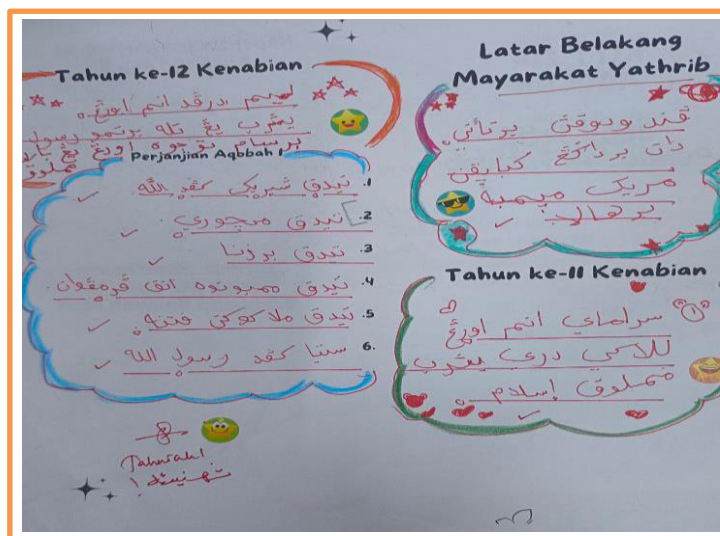 Tahun ke-12 Kenabian
انم اورڠ
يثرب يڠ تله برتمو رسول
برسام توجوه اورڠ
Perjanjian Aqobbah 1
1. تيدق شيريک کڤد الله
2. تيدق منچوري
3. تيدق برزنا
4. تيدق ممبونوه انق ڤرمڤوان
5. تيدق ملاکوکن فتنه
6. ستيا کڤد رسول الله
Tahniah!
Latar Belakang
Mayarakat Yathrib
ڤندودوقڽ
دان
مريک ميمبه
برهالا
Tahun ke-11 Kenabian
سراماي انم اورڠ
للاکي دري يثرب
مملوق إسلام